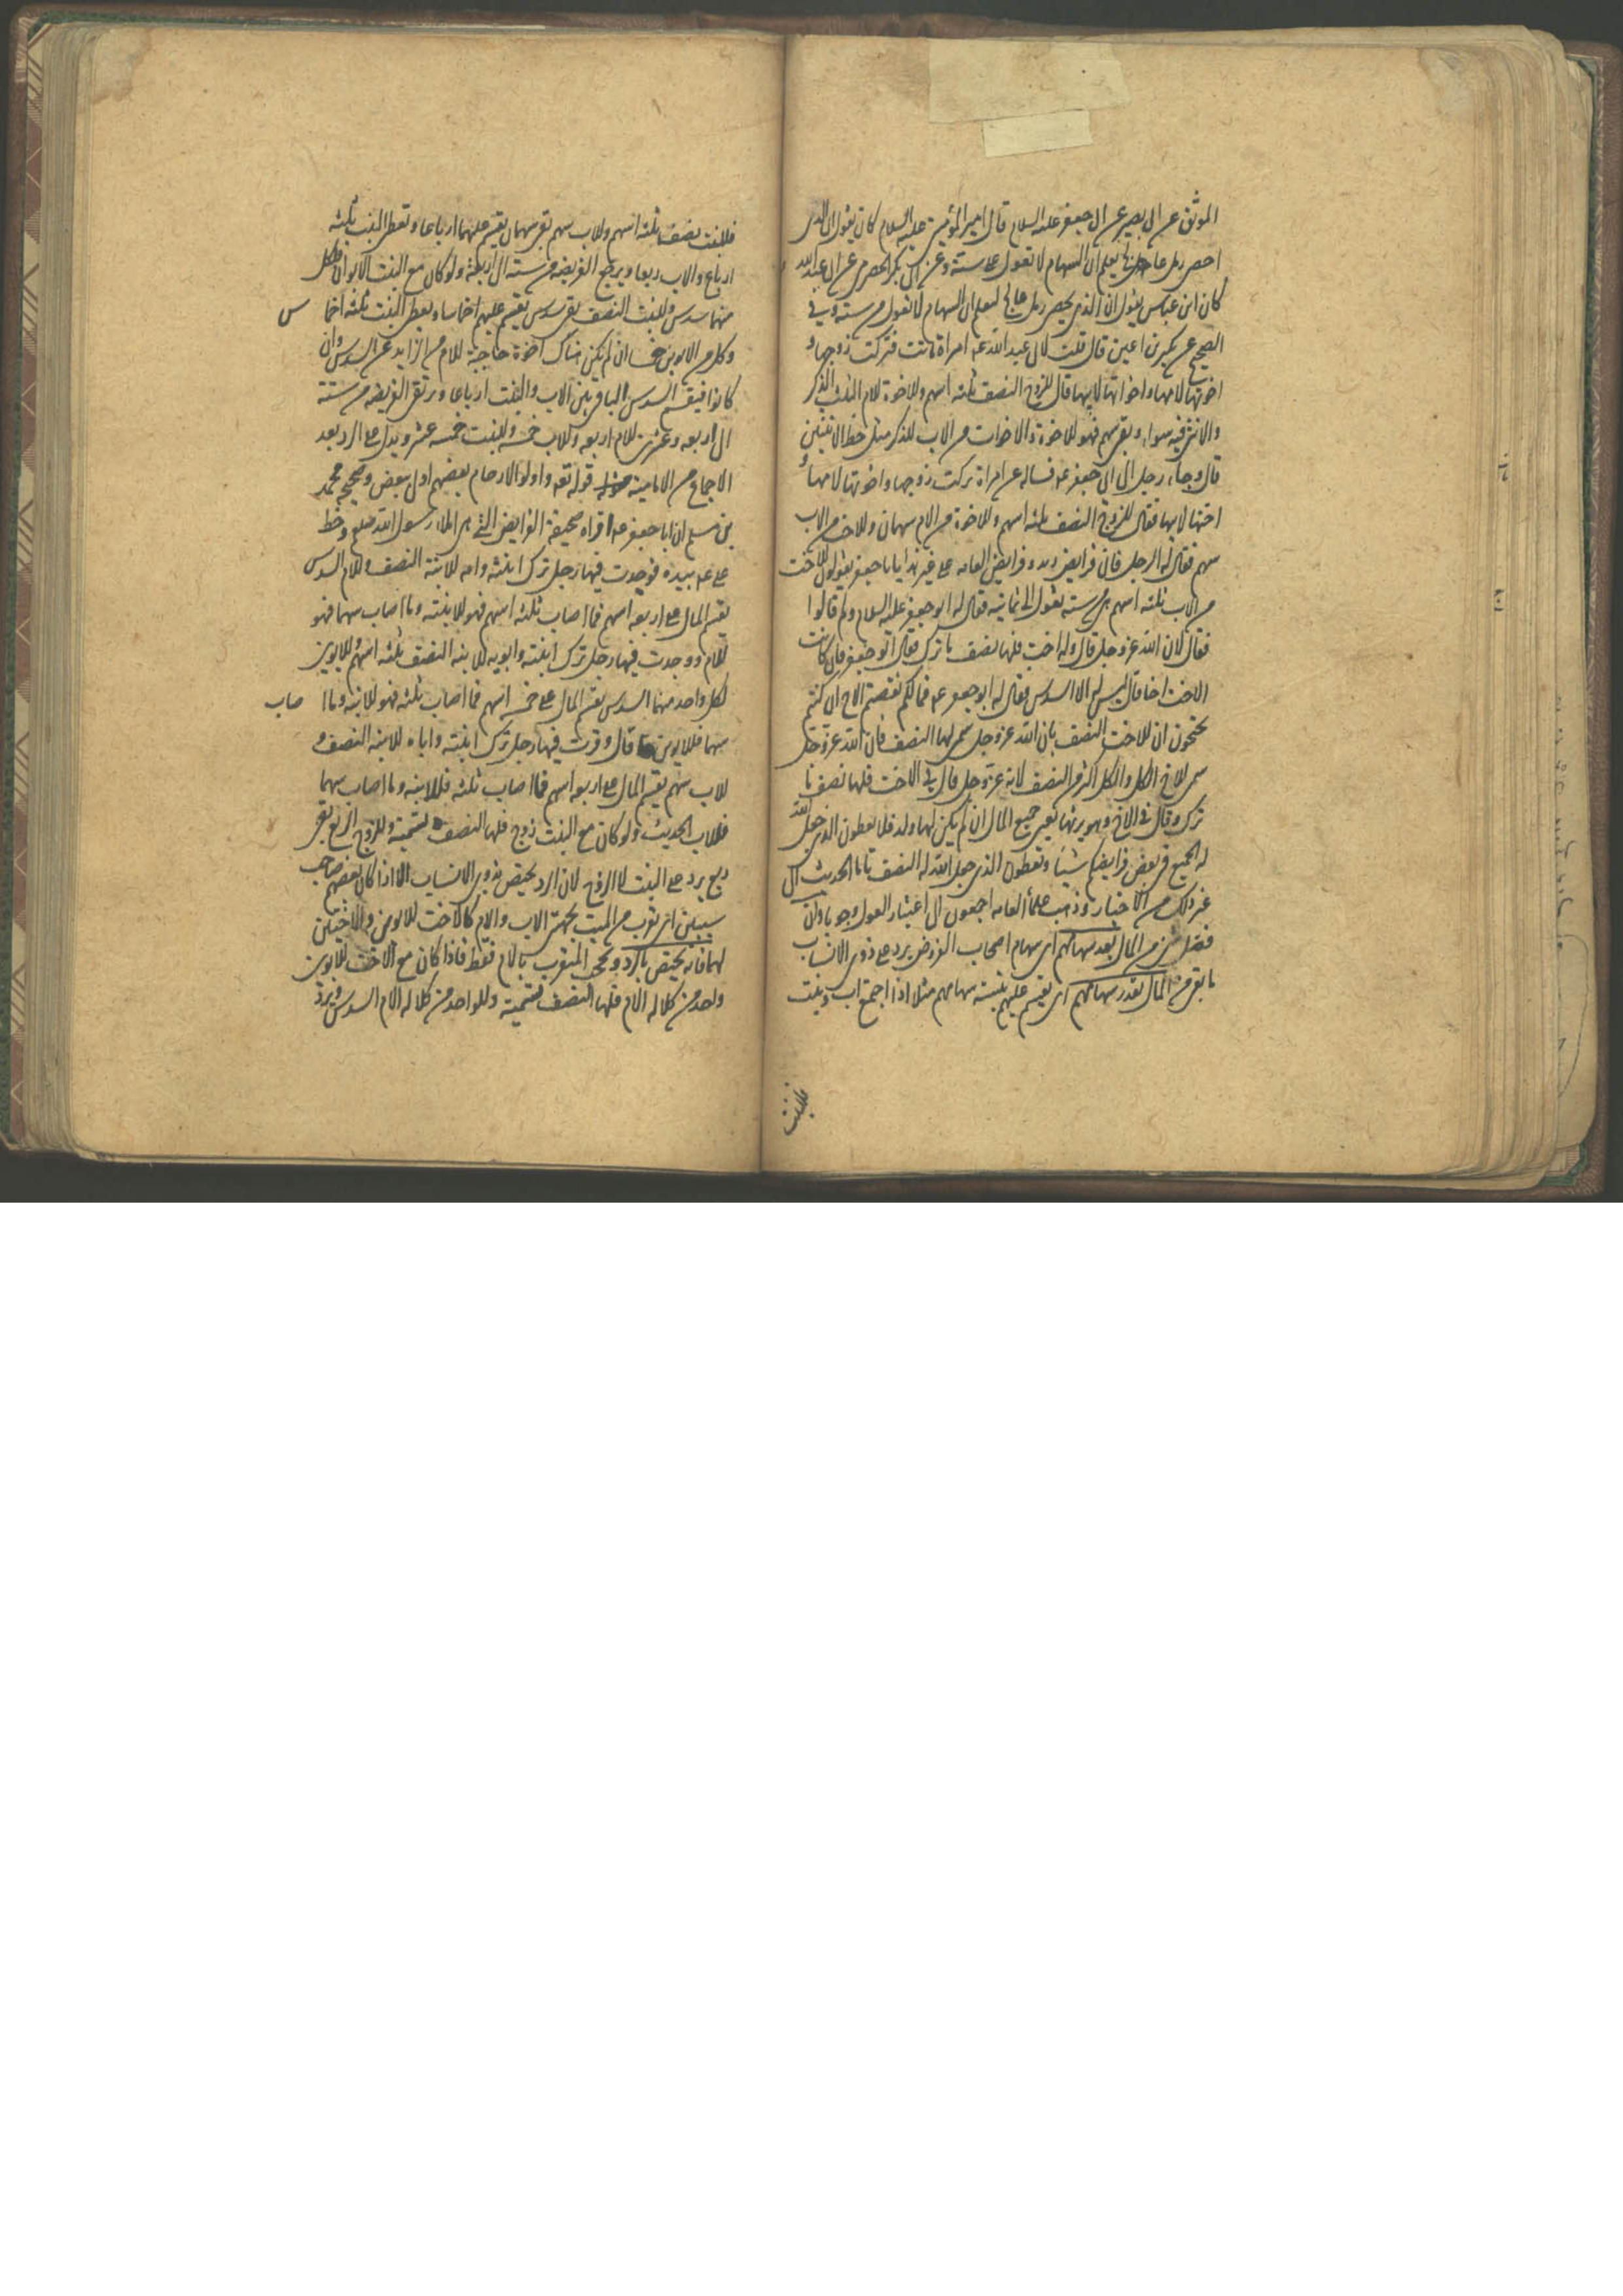 الموثق عن ابى بصير عن ابى جعفر عليه السلام قال امير المؤمنين عليه السلام كان يقول ان الذى
احصى رمل عالج يعلم ان السهام لا تعول على ستة وعن ابى بكر الحضرمى عن ابى عبد الله
كان ابن عباس يقول ان الذى يحصى رمل عالج ليعلم ان السهام لا تعول من ستة وفى
الصحيح عن بكير بن اعين قال قلت لابى عبد الله عه امراة ماتت فتركت زوجها و
اخوتها لامها واخواتها لابيها قال للزوج النصف ثلثه اسهم وللاخوة للام الثلث الذكر
والانثى فيه سواء وبقى سهم فهو للاخوة والاخوات من الاب للذكر مثل حظ الانثيين
قال وجاء رجل الى ابى جعفر عه فساله عن امراة تركت زوجها واخوتها لامها و
اختها لابيها فقال للزوج النصف ثلثه اسهم وللاخوة من الام سهمان وللاخت من الاب
سهم فقال له الرجل فان فرايض زيد وفرايض العامه على غير هذا يا ابا جعفر يقولون للاخت
من الاب ثلثه اسهم هى من سته تعول الى ثمانيه فقال له ابو جعفر عليه السلام ولم قالوا
فقال لان الله عز وجل قال وله اخت فلها نصف ما ترك فقال ابو جعفر فان كانت
الاخت اخا قال ليس له الا السدس فقال له ابو جعفر عه فما لكم نقصتم الاخ ان كنتم
تحتجون ان للاخت النصف بان الله عز وجل سمى لها النصف فان الله عز وجل
سمى للاخ الكل والكل اكثر من النصف لانه عز وجل قال فى الاخت فلها نصف ما
ترك وقال فى الاخ وهو يرثها يعنى جميع المال ان لم يكن لها ولد فلا تعطون الذى جعل الله
له الجميع فى بعض فرايضكم شيئا وتعطون الذى جعل الله له النصف تاما الحديث الى
غير ذلك من الاخبار وذهب علماء العامه اجمعون الى اعتبار العول وجوبا وان
فضل شىء من المال بعد سهامهم اى سهام اصحاب الفروض يرد على ذوى الانساب
ما بقى من المال بقدر سهامهم اى يقسم عليهم بنسبة سهامهم مثلا اذا اجتمع اب وبنت
فللبنت
فللبنت نصف ثلثه اسهم وللاب سهم بقى سهمان يقسم عليهما ارباعا وتعطى البنت ثلثه
ارباع والاب ربعا ويرجع الفريضه من سته الى اربعة ولو كان مع البنت الابوان فلكل
منهما سدس وللبنت النصف بقى سدس يقسم عليهم اخماسا ويعطى البنت ثلثه اخما س
وكل من الابوين خمسا ان لم يكن هناك اخوة حاجبة للام من الزايد عن السدس وان
كانوا فيقسم السدس الباقى بين الاب والبنت ارباعا وترتقى الفريضه من ستة
الى اربعه وعشرين للام اربعه وللاب خمسه وللبنت خمسه عشر ويدل على الرد بعد
الاجماع من الاماميه قوله تعه واولوا الارحام بعضهم اولى ببعض وصحيحه محمد
بن مسلم ان ابا جعفر عه اقراه صحيفة الفرايض التى هى املاء رسول الله صلعم وخط
على عه بيده فوجدت فيها رجل ترك ابنته وامه للابنة النصف وللام السدس
يقسم المال على اربعه اسهم فما اصاب ثلثه اسهم فهو للابنته وما اصاب سهما فهو
للام ووجدت فيها رجل ترك ابنته وابويه للابنه النصف ثلثه اسهم وللابوين
لكل واحد منهما السدس يقسم المال على خمسه اسهم فما اصاب ثلثه فهو للابنه وما ا صاب
سهما فللابوين قال وقرت فيها رجل ترك ابنته واباه للابنه النصف و
للاب سهم يقسم المال على اربعه اسهم فما اصاب ثلثه فللابنه وما اصاب سهما
فللاب الحديث ولو كان مع البنت زوج فلها النصف تسمية وللزوج الربع بقى
ربع يرد على البنت لا الزوج لان الرد يختص بذوى الانساب الا اذا كان بعضهم صاحب
سببين اى تقرب من الميت بجهتى الاب والام كالاخت للابوين والاختين
لهما فانه يختص بالرد ويحجب المتقرب بالام فقط فاذا كان مع الاخت للابوين
واحد من كلاله الام فلها النصف تسمية وللواحد من كلاله الام السدس ويرد